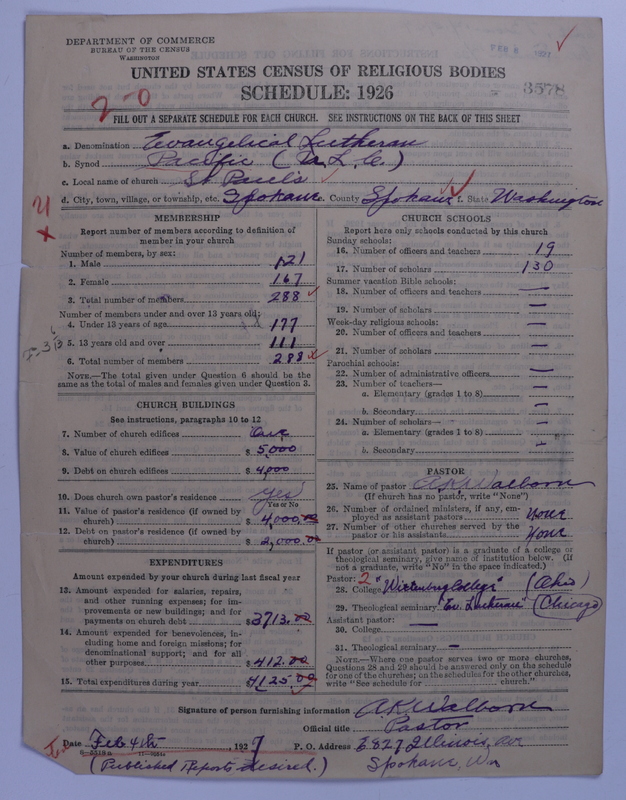 DEPARTMENT OF COMMERCE
BUREAU OF THE CENSUS
WASHINGTON
FEB 8 1927
UNITED STATES CENSUS OF RELIGIOUS BODIES
SCHEDULE: 1926
3578
2-0
FILL OUT A SEPARATE SCHEDULE FOR EACH CHURCH. SEE INSTRUCTIONS ON THE BACK OF THIS SHEET
a. Denomination Evangelical Lutheran
b. Synod Pacific (U.L.C.)
c. Local name of church St Paul's
d. City, town, village, or township, etc. Spokane e. County Spokane f. State Washington
MEMBERSHIP
Report number of members according to definition of
member in your church
Number of members, by sex:
1. Male 121
2. Female 167
3. Total number of members 288
Number of members under and over 13 years old:
4. Under 13 years of age 177
5. 13 years old and over 111
6. Total number of members 288
NOTE.—The total given under Question 6 should be the
same as the total of males and females given under Question 3.
CHURCH BUILDINGS
See instructions, paragraphs 10 to 12
7. Number of church edifices One
8. Value of church edifices $ 5,000
9. Debt on church edifices $ 4,000
10. Does church own pastor's residence Yes
Yes or No
11. Value of pastor's residence (if owned by
church) $ 4000.00
12. Debt on pastor's residence (if owned by
church) $ 2,000.00
EXPENDITURES
Amount expended by your church during last fiscal year
13. Amount expended for salaries, repairs,
and other running expenses; for im-
provements or new buildings; and for
payments on church debt $ 3713.00
14. Amount expended for benevolences, in-
cluding home and foreign missions; for
denominational support; and for all
other purposes $ 412.00
15. Total expenditures during year $ 4125.00
CHURCH SCHOOLS
Report here only schools conducted by this church
Sunday schools:
16. Number of officers and teachers 19
17. Number of scholars 130
Summer vacation Bible schools:
18. Number of officers and teachers —
19. Number of scholars —
Week-day religious schools:
20. Number of officers and teachers —
21. Number of scholars —
Parochial schools:
22. Number of administrative officers —
23. Number of teachers—
a. Elementary (grades 1 to 8) —
b. Secondary —
24. Number of scholars—
a. Elementary (grades 1 to 8) —
b. Secondary —
PASTOR
25. Name of pastor A.K. Walborn
(If church has no pastor, write "None")
26. Number of ordained ministers, if any, em-
ployed as assistant pastors None
27. Number of other churches served by the
pastor or his assistants None
If pastor (or assistant pastor) is a graduate of a college or
theological seminary, give name of institution below. (If
not a graduate, write "No" in the space indicated.)
Pastor: 2
28. College "Wittenburg College" (Ohio)
29. Theological seminary "Ev. Lutheran" (Chicago)
Assistant pastor:
30. College —
31. Theological seminary —
NOTE.—Where one pastor serves two or more churches,
Questions 28 and 29 should be answered only on the schedule
for one of the churches; on the schedules for the other churches,
write "See schedule for church."
Signature of person furnishing information A.K. Walborn
Official title Pastor
Date Feb 4th 1927 P. O. Address E 827 Illinois, ave
(Published Reports desired.) Spokane, Wn